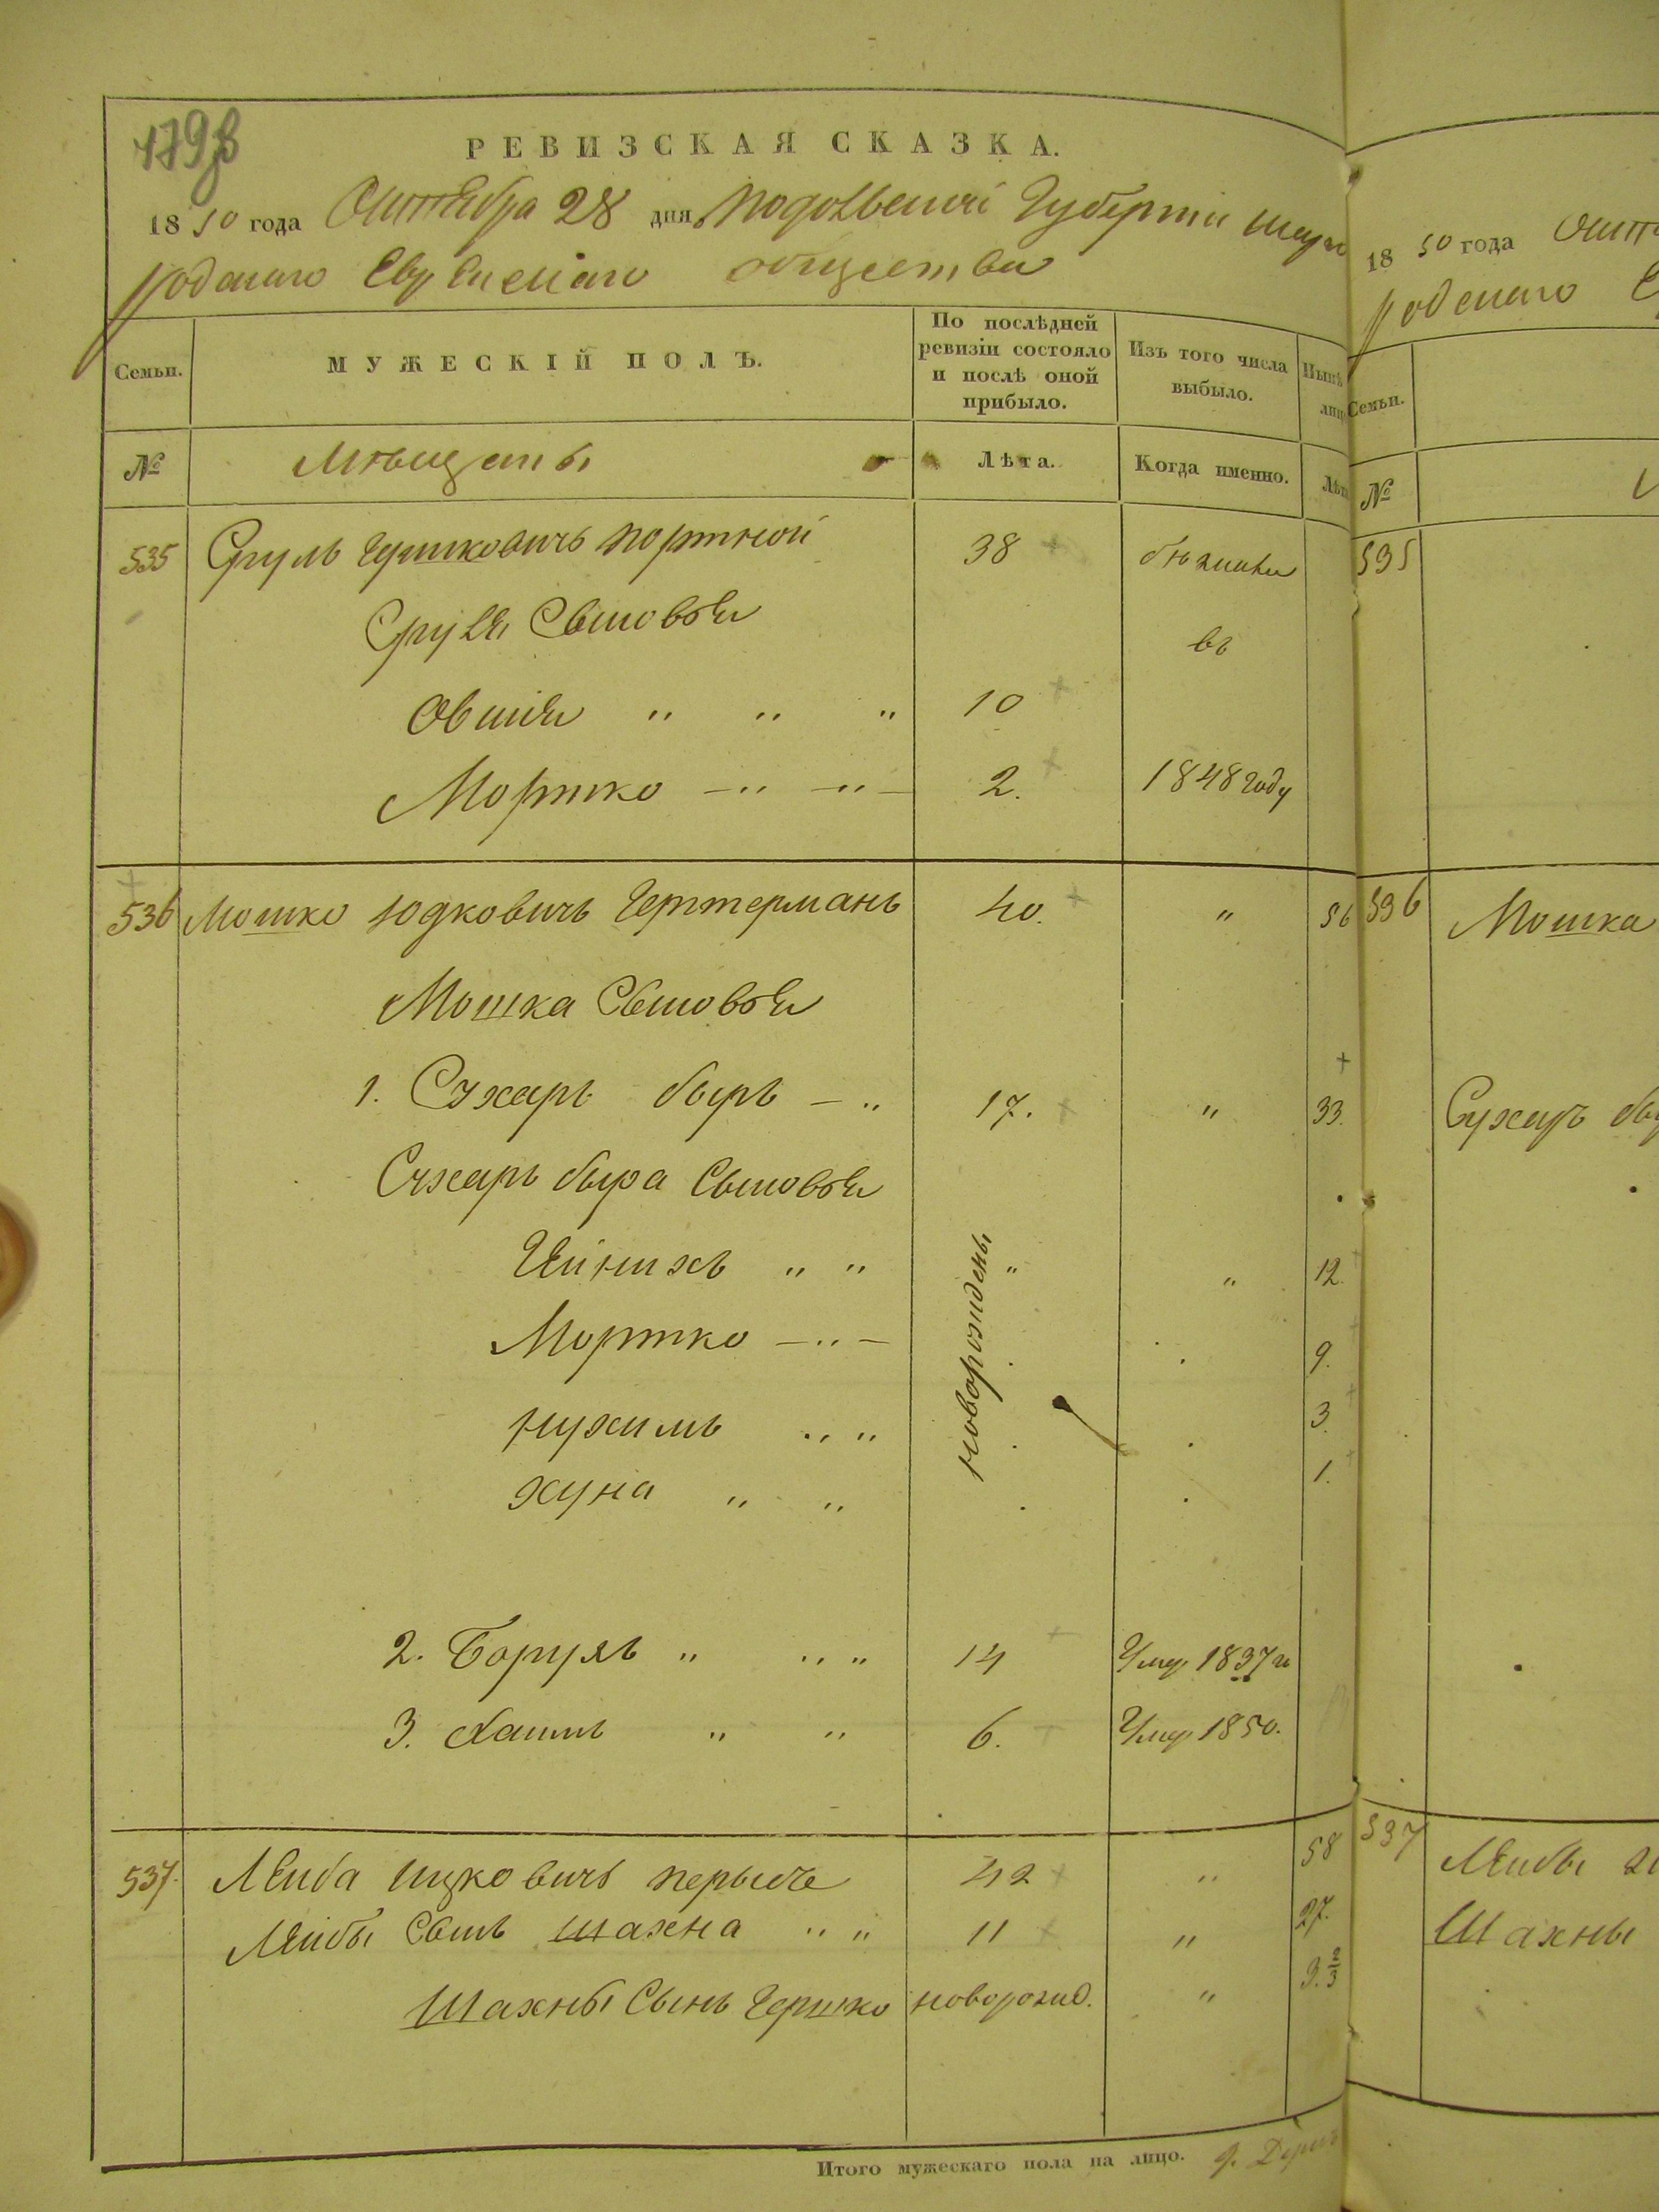 РЕВИЗСКАЯ СКАЗКА.
1850 года Октября 28 дня, Подольской Губерніи шарго
родскаго Еврейскаго общества
Семьи.
МУЖЕСКІЙ ПОЛЪ.
По послѣдней ревизіи состояло и послѣ оной прибыло.
Изъ того числа выбыло.
Нынѣ
лиц
№
Мѣщаны
Лѣта.
Когда именно.
Лѣт
535 Сруль Гершковичъ Портной 38 бѣжали
Сруля Сыновья въ
Овшія " " " 10
Мортко " " 2. 1848 году
536 Мошко Юдковичъ Гертерманъ 40. " 56
Мошка Сыновья
1. Сухаръ быръ " 17. " 33.
Сухаръ быра Сыновья
" " новорождены " " 12.
Мортко " 9.
Нухимъ " " 3.
Хуна " " 1.
2. Борухъ " " " 14 Умер 1837 г
3. Хаимъ " " 6. Умер 1850.
537. Лейба Ицковичъ 42 " 58
Лейбы Сынъ Шахна " " 11 " 27.
Шахны Сынъ Гершко новорожд. " 3. 2/3
Итого мужескаго пола на лицо.
1850 года
родскаго
Семьи.
№
535
536 Мошка
Сухаръ
537 Лейбы
Шахны